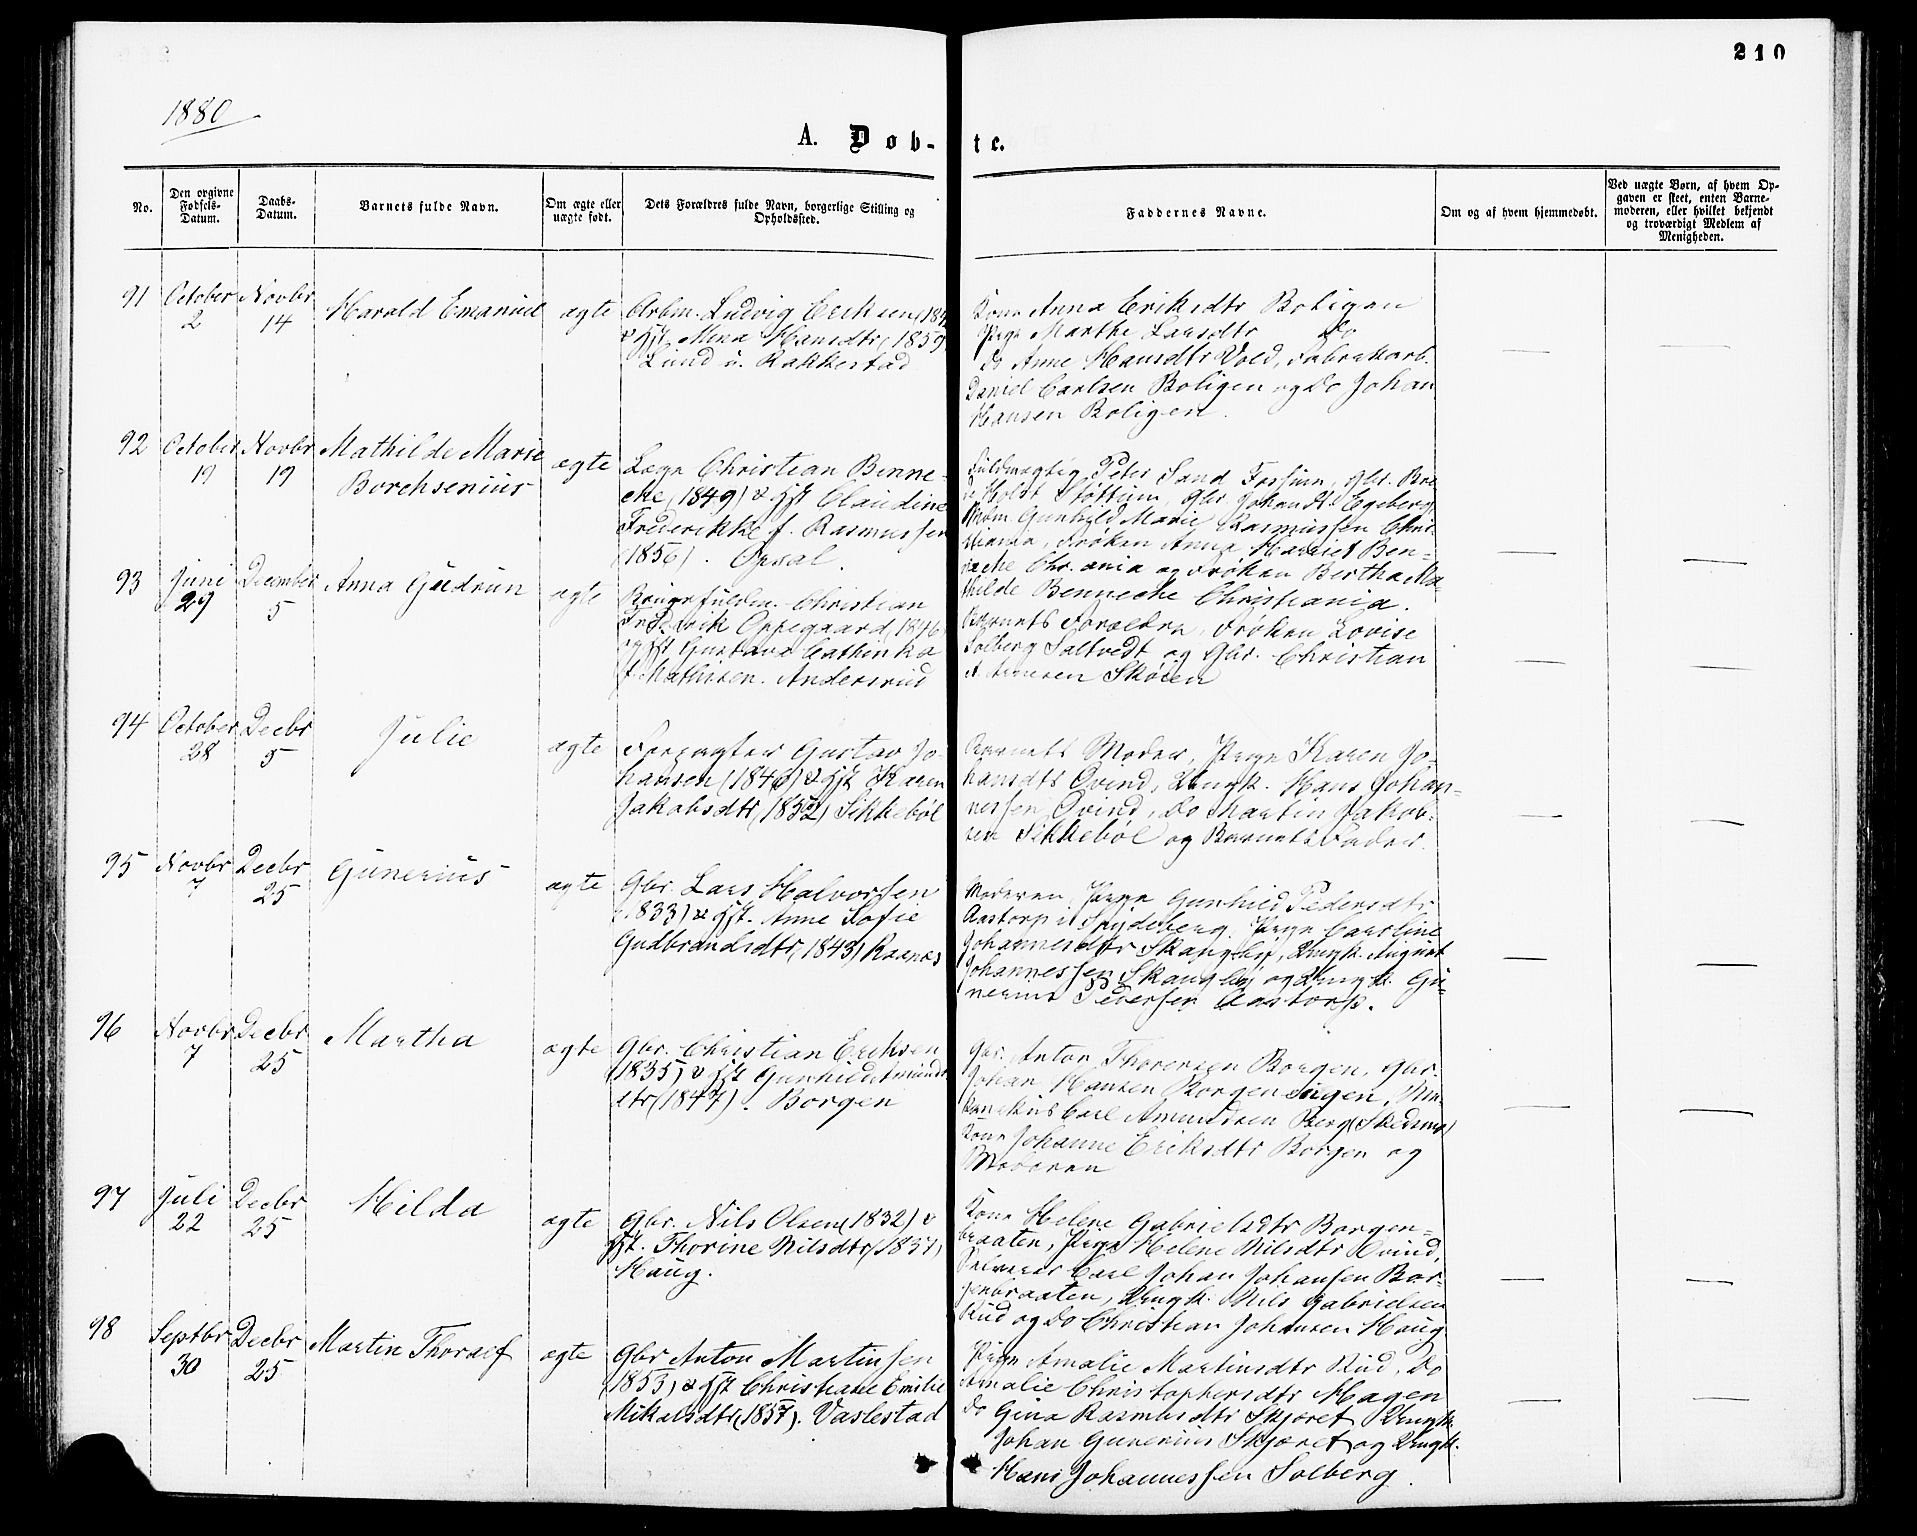 210
1880
A. Døb-te.
No.
Den opgivne Fødsels-Datum.
Daabs-Datum.
Barnets fulde Navn.
Om ægte eller uægte født.
Dets Forældres fulde Navn, borgerlige Stilling og Opholdssted.
Faddernes Navne.
Om og af hvem hjemmedøbt.
Ved uægte Børn, af hvem Op-
gaven er skeet, enten Barne-
moderen, eller hvilket bekjendt
og troværdigt Medlem af
Menigheden.
91 October 2 Novbr 14 Harald Emanuel ægte
Arbm. Ludvig Eriksen
& Hst. Mina Hansdtr (1859
Lund i. Rakkestad
Kone Anna Eriksdtr Boligen
Pige Marthe Larsdtr Do
Do Anne Hansdtr Vold, Fabrikarb.
Daniel Carlsen Boligen og Do Johan
Hansen Boligen.
92 October 19 Novbr 19 Mathilde Marie Borchsenius ægte
Læge Christian Benne-
che (1849) & Hst Claudine
Frederikke f. Rasmussen
(1856). Opsal.
Fuldmægtig Peter Sand Fossum, Gbr.
Holst Støttum, Gbr Johan H. Egeberg
Gunhild Marie Rasmussen Chri-
stiania, Frøken Anna Harriet Ben-
neche Chr.ania og Frøken Bertha Ma-
thilde Benneche Christiania.
93 Juni 29 December 5 Anna Gudrun ægte
Christian
Fredrik Oppegaard (1846)
og Hst Gustava Cathinka
f. Mathisen. Andersrud
Barnets Forældre, Frøken Lovise
Solberg Saltvedt og Gbr. Christian
A. Arnesen Skøien
94 October 28 Decbr 5 Julie ægte
Forpagter Gustav Jo-
hansen (1846) & Hst Karen
Jakobsdtr (1852) Sikkebøl
Barnets Moder, Pige Karen Jo-
hansdtr Ovind, Ungk. Hans Johan-
nessen Ovind, Do Martin Jakob-
sen Sikkebøl og Barnets Fader.
95 Novbr 7 Decbr 25 Gunerius ægte
Gbr. Lars Halvorsen
(1833) & Hst. Anne Sofie
Gudbrandsdtr (1843) Raanaas
Moderen, Pige Gunhild Pedersdtr
Aastorp i Spydeberg, Pige Caroline
Johannesdtr Skangsby, Ungk. August
Johannessen Skangsby og Ungk. Gu-
nerius Pedersen Aastorp.
96 Novbr 7 Decbr 25 Martha ægte
Gbr. Christian Eriksen
(1835) & Hst Gunhild Amunds-
dtr (1847). Borgen
Gbr. Anton Thoresen Borgen, Gbr.
Johan Hansen Borgen
Carl Amundsen Berg (Skedsmo)
Kone Johanne Eriksdtr Borgen og
Moderen
97 Juli 22 Decbr 25 Hilda ægte
Gbr. Nils Olsen (1832) &
Hst. Thorine Nilsdtr (1837)
Haug.
Kone Helene Gabrielsdtr Borgen-
braaten, Pige Helene Nilsdtr Ovind,
Selveier Carl Johan Johansen Bor-
genbraaten, Ungk. Nils Gabrielsen
Rud og Do Christian Johansen Haug
98 Septbr 30 Decbr 25 Martin Thoralf ægte
Gbr Anton Martinsen
(1853) & Hst Christiane Emilie
Mikalsdtr (1857). Vaslestad
Pige Amalie Martinsdtr Rud, Do
Amalie Christophersdtr Hagen
Do Gina Rasmusdtr Skjæret Ungk.
Johan Gunerius Skjæret og Ungk.
Hans Johannessen Solberg.